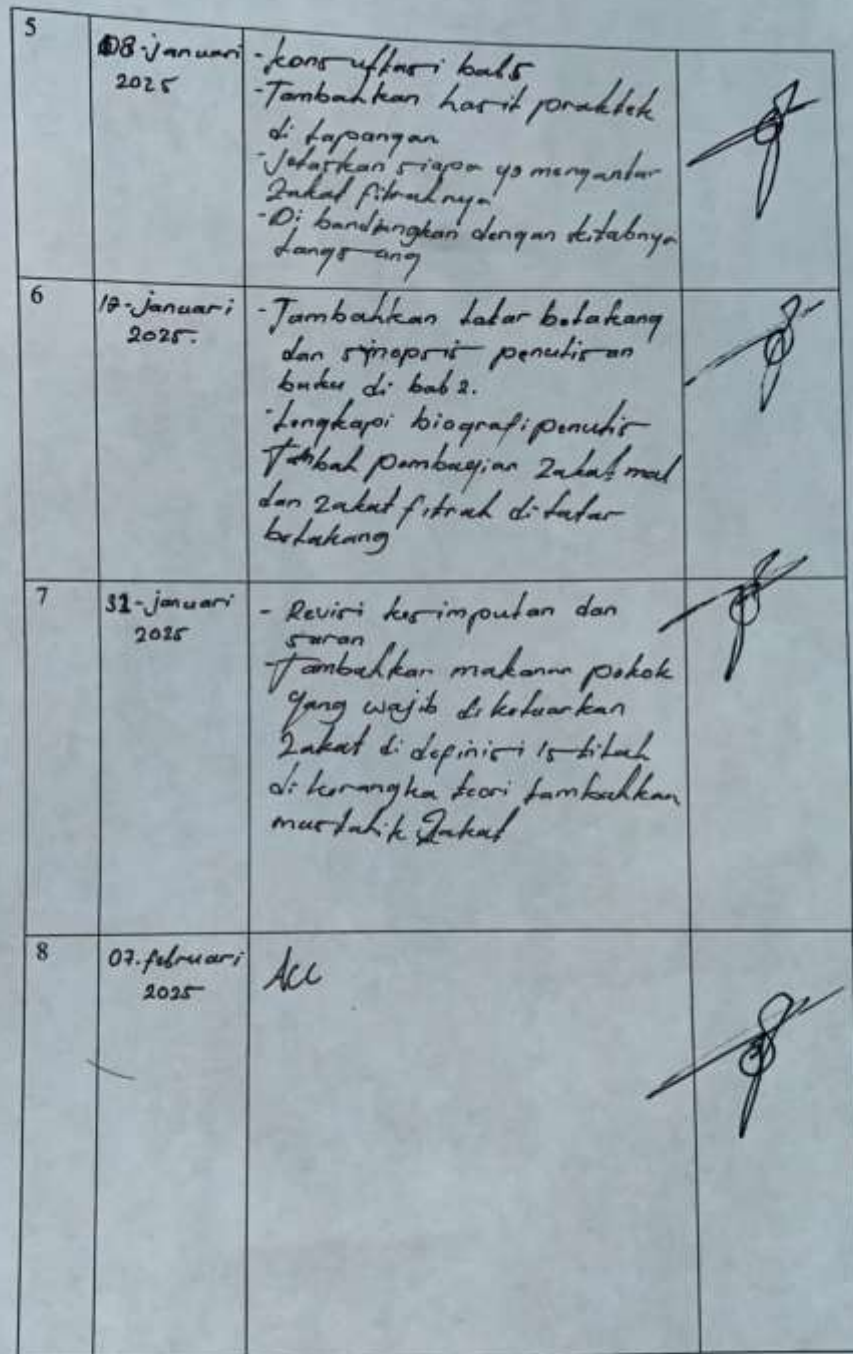 5
08-januari
2025
- konsultasi bab 5
- Tambahkan hasil praktek
di lapangan
- Jelaskan siapa yg mengantar
Zakat fitrahnya
- Di bandingkan dengan kitabnya
langsung
6
2025.
- Tambahkan latar belakang
dan sinopsis penulisan
buku di bab 2.
- Lengkapi biografi penulis
Tambah pembagian Zakat mal
dan zakat fitrah di latar
belakang
7
31-januari
2025
- Revisi kesimpulan dan
saran
- Tambahkan makanan pokok
yang wajib di keluarkan
Zakat di definisi istilah
di kerangka teori tambahkan
mustahik Zakat
8
07.februari
2025
Acc